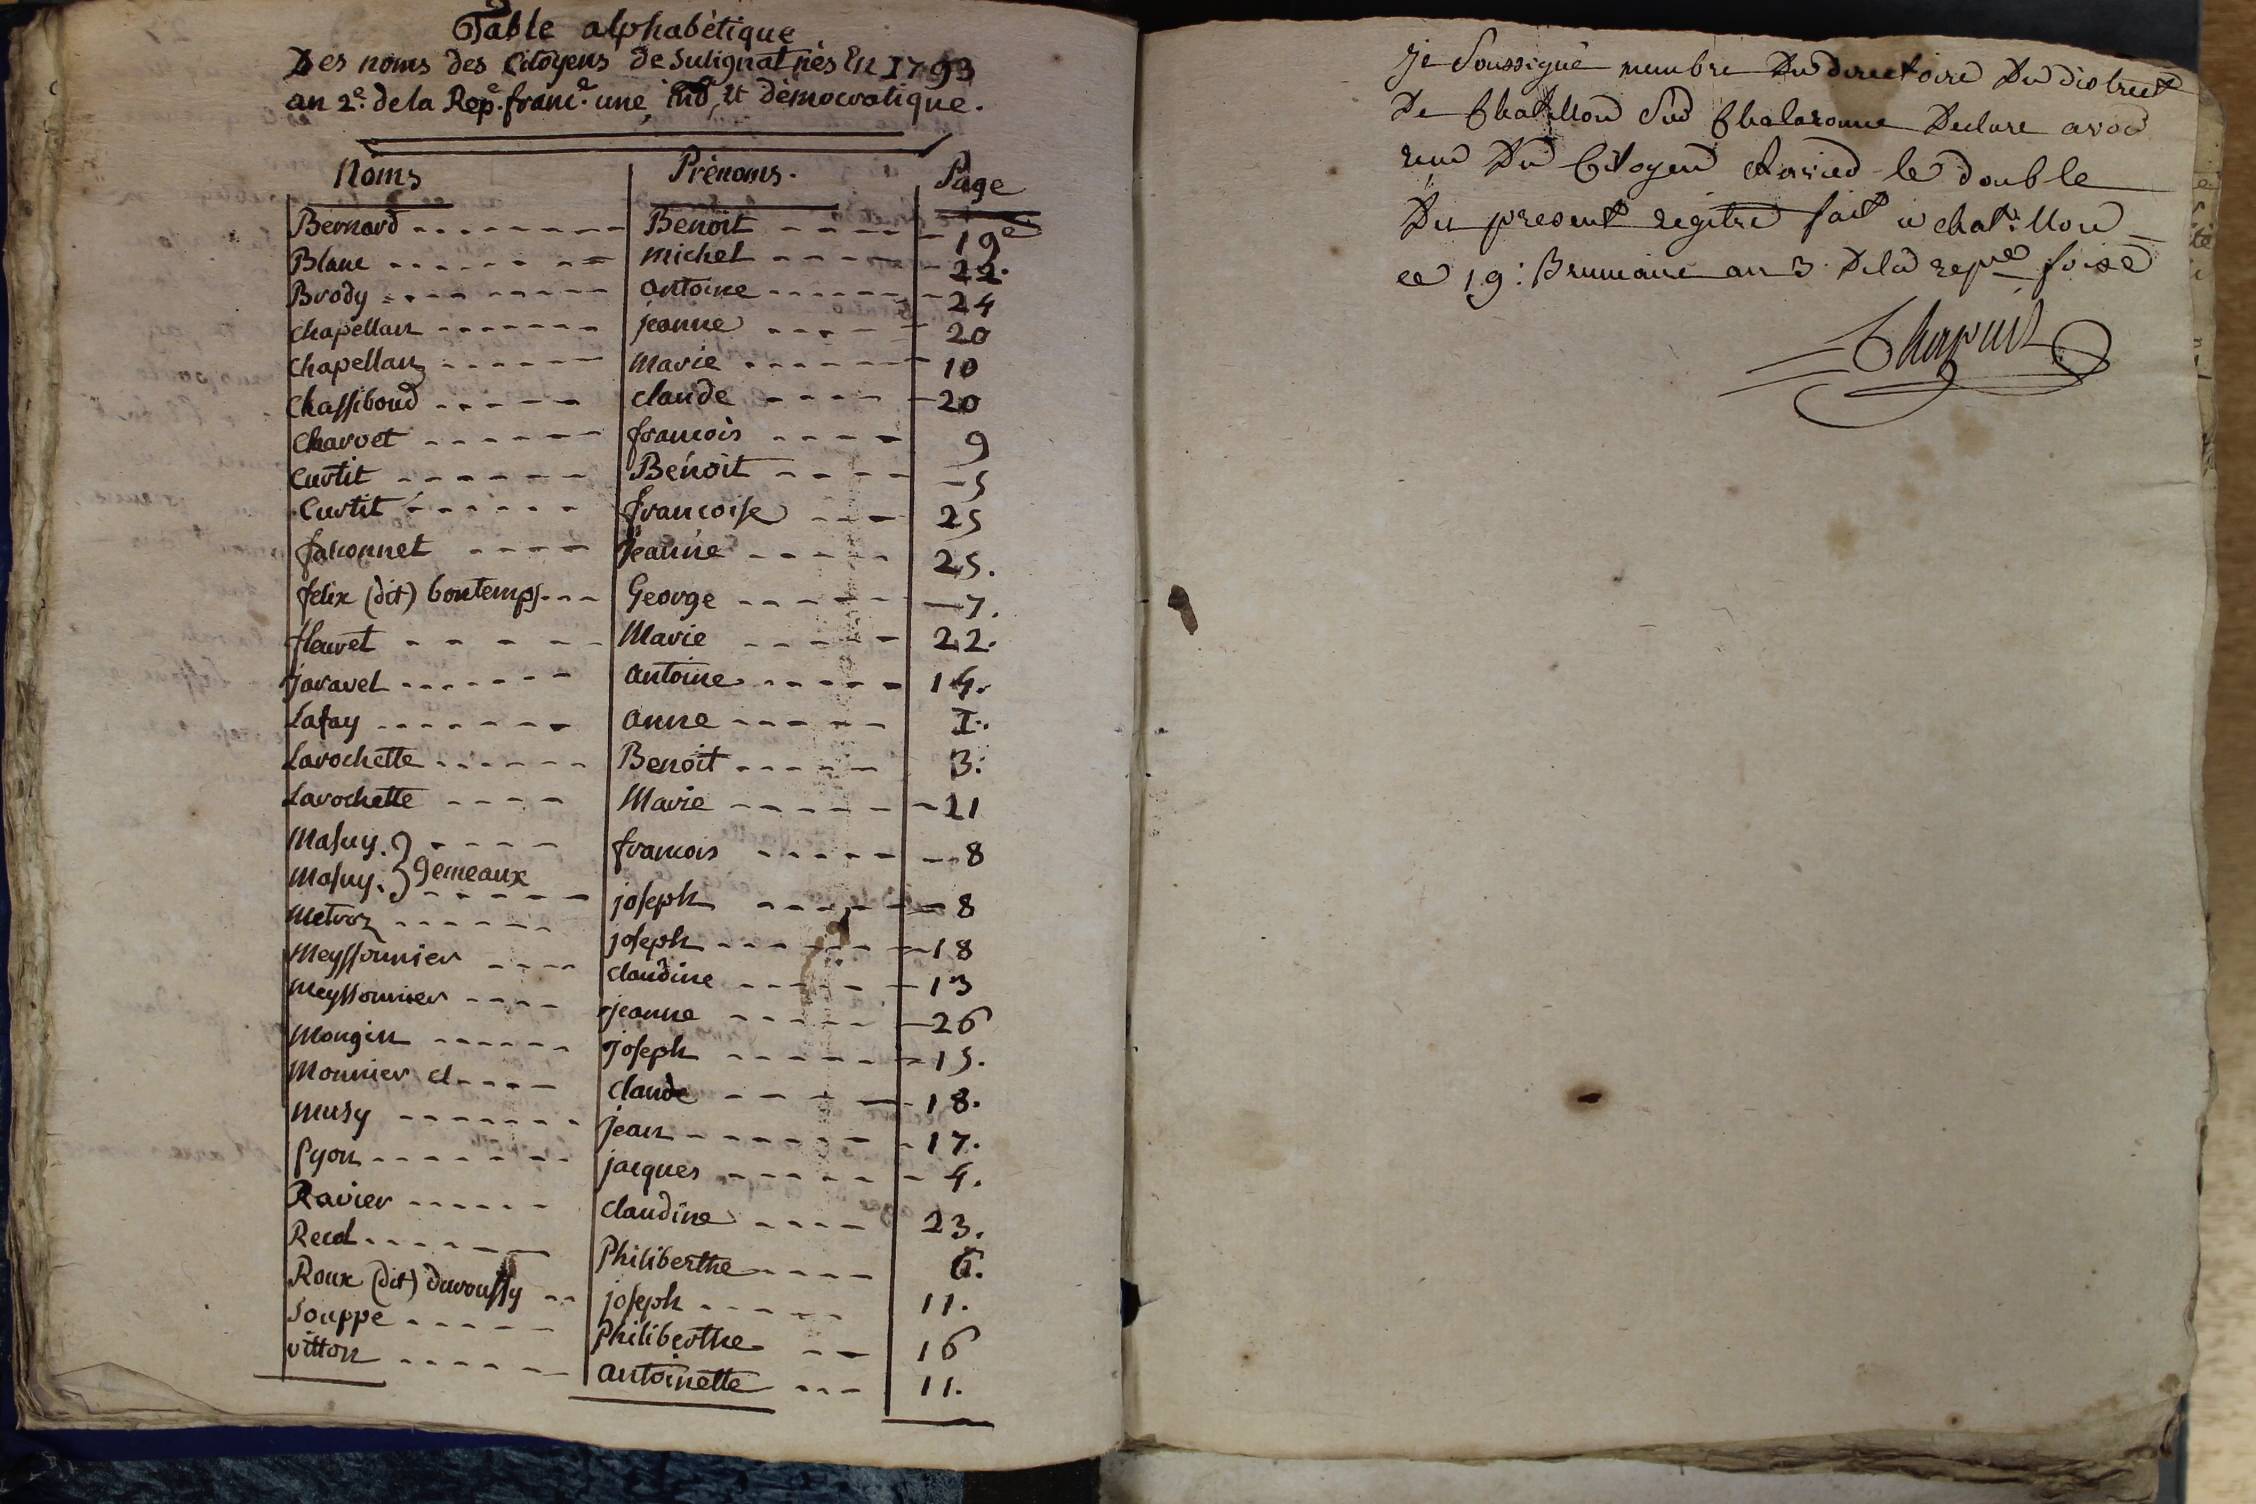 Table alphabétique
Des noms des Citoyens de Sulignat nés En 1793
an 2e. de la Repe. france. une, ind, et démocratique.
Noms Prénoms. Page
Bernard Benoit 19e
Blanc michel 22.
Brody antoine 24
chapellan jeanne 20
chapellan marie 10
chassiboud claude 20
charvet francois 9
curtit Benoit 5
curtit francoise 25
falconnet jeanne 25.
felix (dit) bontemps George 7.
fleuret Marie 22.
javavel antoine 14.
Lafay anne I.
Larochette Benoit 3.
Larochette Marie 21
Masuy. francois 8
Masuy. gemeaux joseph 8
Metroz joseph 18
Meyssonnier claudine 13
Meyssonnier jeanne 26
Mongin joseph 15.
Monnier cl claude 18.
musy jean 17.
Pyon jacques 4.
Ravier claudine 23.
Recol Philiberthe 6.
Roux (dit) duroussy joseph 11.
Souppe Philiberthe 16
vitton antoinette 11.
Je Soussigné membre Du directoire Du district
De Chatillon Sur Chalaronne Declare avoir
reçu Du Citoyen Ravier le double
Du present regitre fait a chatillon
ce 19: Brumaire an 3 De la repue
Chapuis